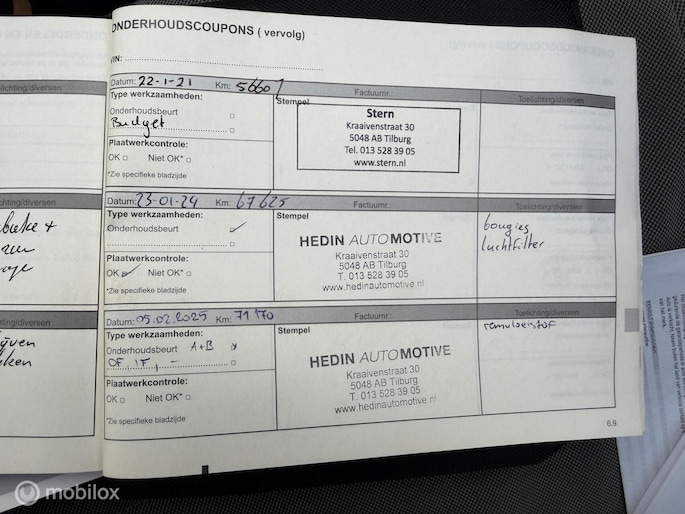 ONDERHOUDSCOUPONS ( vervolg)
VIN:
Datum: 22-1-21 Km: 56601 Factuurnr.: Toelichting/diversen
Type werkzaamheden:
Onderhoudsbeurt
Budget
Plaatwerkcontrole:
OK Niet OK*
*Zie specifieke bladzijde
Stempel
Stern
Kraaivenstraat 30
5048 AB Tilburg
Tel. 013 528 39 05
www.stern.nl
Datum: 23-01-24 Km: 67625 Factuurnr.: Toelichting/diversen
Type werkzaamheden:
Onderhoudsbeurt
Plaatwerkcontrole:
OK Niet OK*
*Zie specifieke bladzijde
Stempel
HEDIN AUTOMOTIVE
Kraaivenstraat 30
5048 AB Tilburg
T. 013 528 39 05
www.hedinautomotive.nl
bougies
luchtfilter
Datum: 05.02.2025 Km: 71170 Factuurnr.: Toelichting/diversen
Type werkzaamheden:
Onderhoudsbeurt A+B
OF, IF, -
Plaatwerkcontrole:
OK Niet OK*
*Zie specifieke bladzijde
Stempel
HEDIN AUTOMOTIVE
Kraaivenstraat 30
5048 AB Tilburg
T. 013 528 39 05
www.hedinautomotive.nl
remvloeistof
6.9
mobilox